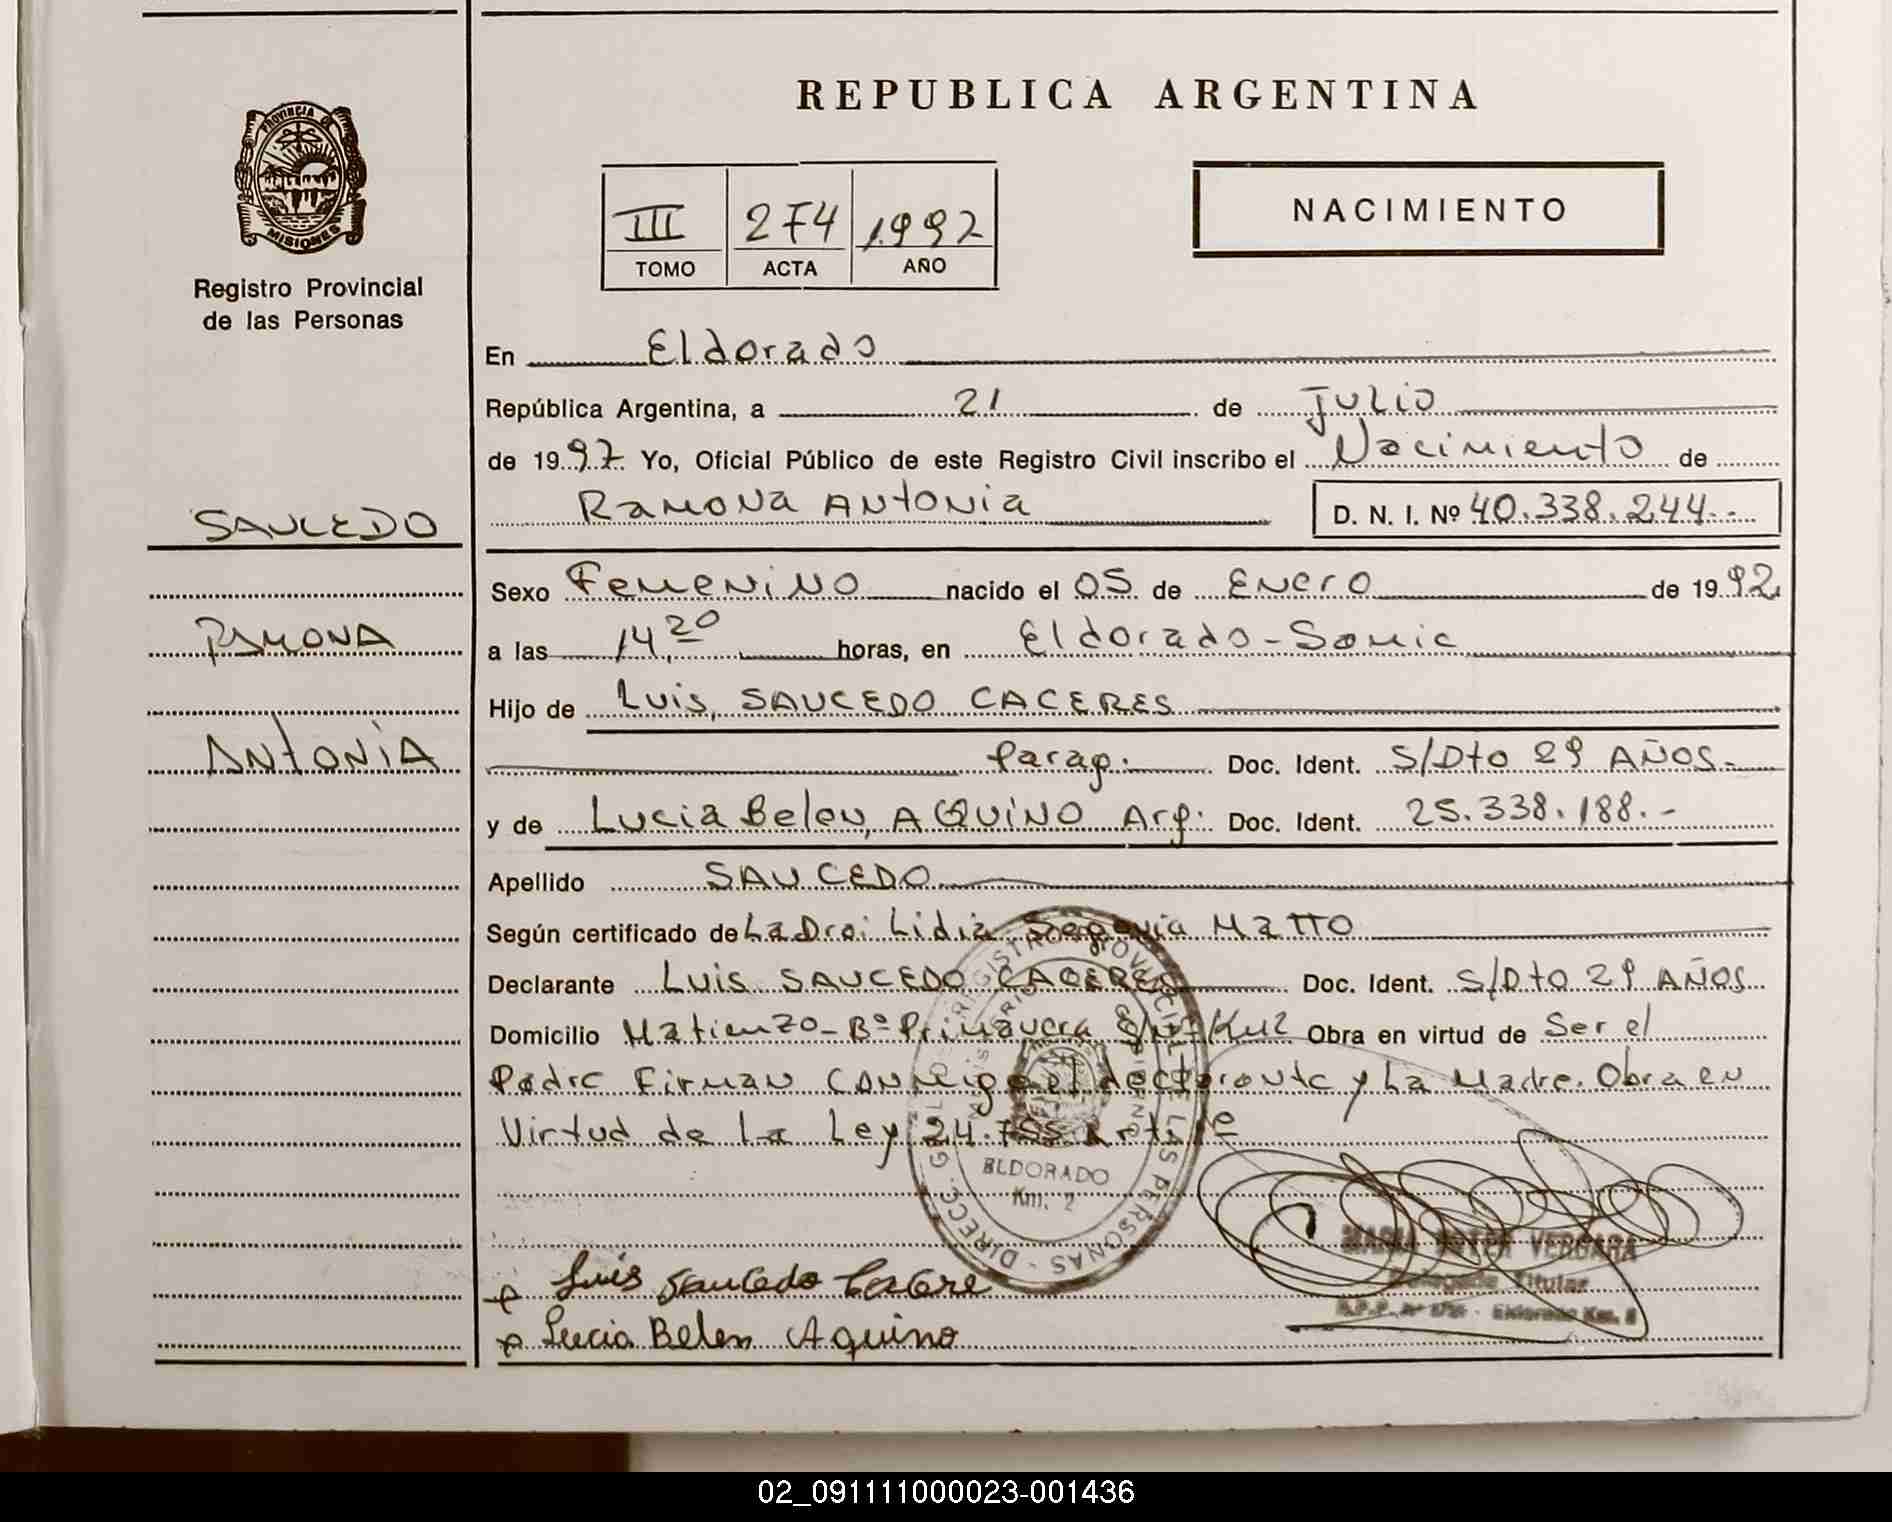 REPUBLICA ARGENTINA
PROVINCIA DE
MISIONES
Registro Provincial
de las Personas
III 274 1992
TOMO ACTA AÑO
NACIMIENTO
En Eldorado
República Argentina, a 21 de Julio
de 1997. Yo, Oficial Público de este Registro Civil inscribo el Nacimiento de
Ramona Antonia D. N. I. Nº 40.338.244.-
SAUCEDO
RAMONA
ANTONIA
Sexo Femenino nacido el 05 de Enero de 1992
a las 14,20 horas, en Eldorado-Samic
Hijo de Luis, SAUCEDO CACERES
Parag. Doc. Ident. S/Dto 29 AÑOS.-
y de Lucia Belen, AQUINO Arg. Doc. Ident. 25.338.188.-
Apellido SAUCEDO
Según certificado de La Dra: Lidia Segovia Matto
Declarante Luis SAUCEDO CACERES Doc. Ident. S/Dto 29 AÑOS
Domicilio Matienzo-Bº Primavera Km2 Obra en virtud de Ser el
Padre Firman Conmigo el declarante y La Madre. Obra en
Virtud de La Ley 24.755 Art. 1º
DIRECC. GRAL. DE REGISTRO PROVINCIAL DE LAS PERSONAS
ELDORADO
Km. 2
Luis Saucedo Cacere
Lucia Belen Aquino
MARIA ESTER VERGARA
Delegada Titular
Eldorado Km. 2
02_091111000023-001436